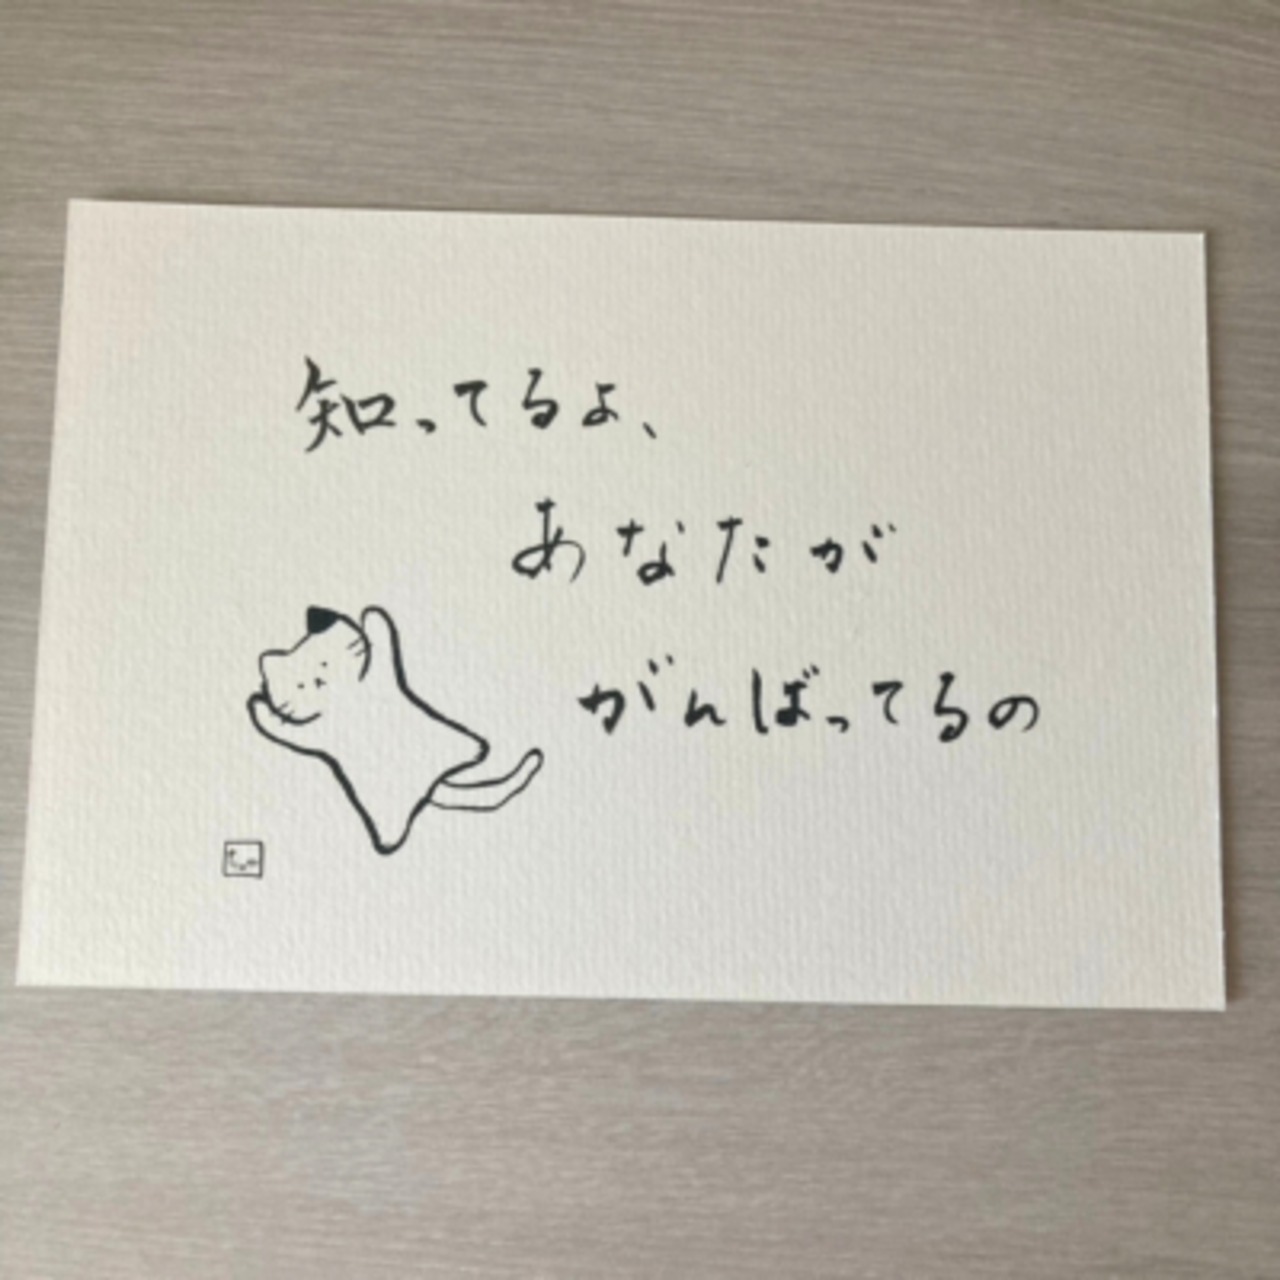 知ってるよ、
あなたが
がんばってるの